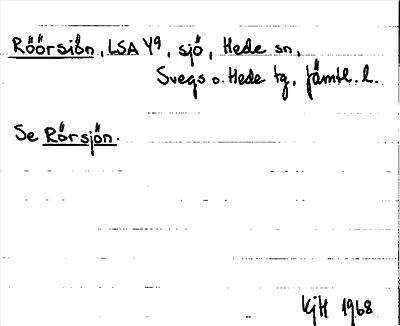 Röörsiön, LSA Y9, sjö, Hede sn,
Svegs o. Hede tg, Jämtl. l.
Se Rörsjön.
KjH 1968